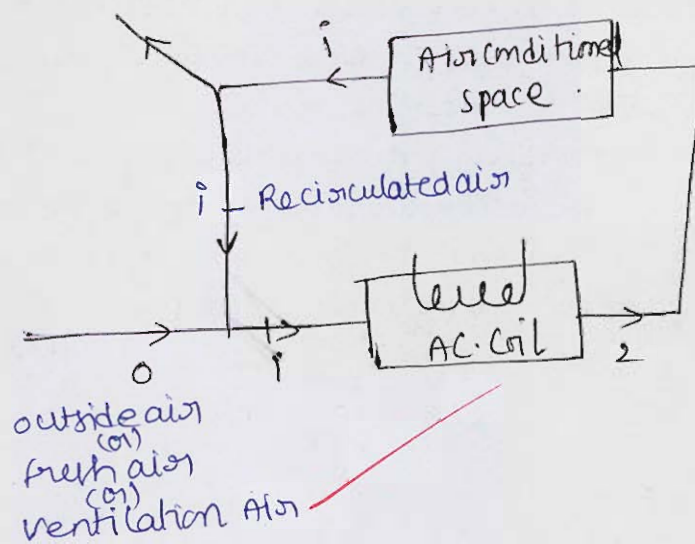 i
Air conditioned
space.
i
Recirculated air
AC. Coil
0
1
2
outside air
(or)
fresh air
(or)
ventilation Air